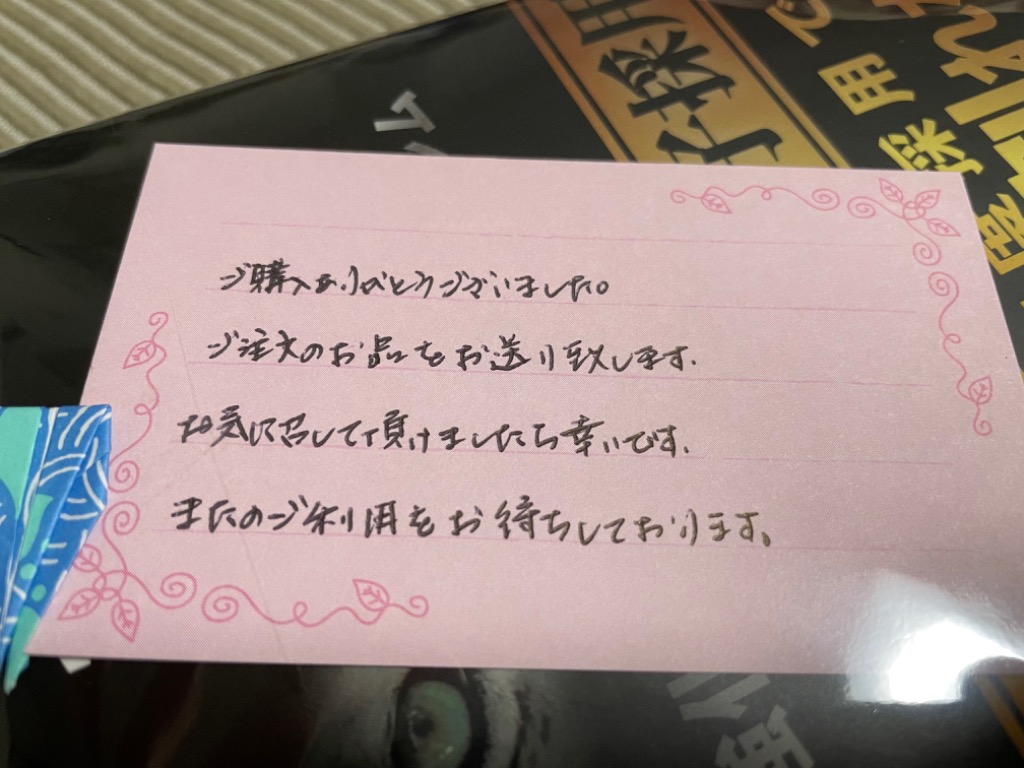 ご購入ありがとうございました。
ご注文のお品をお送り致します.
お気に召して頂けましたら幸いです.
またのご利用をお待ちしております。
採用
採用